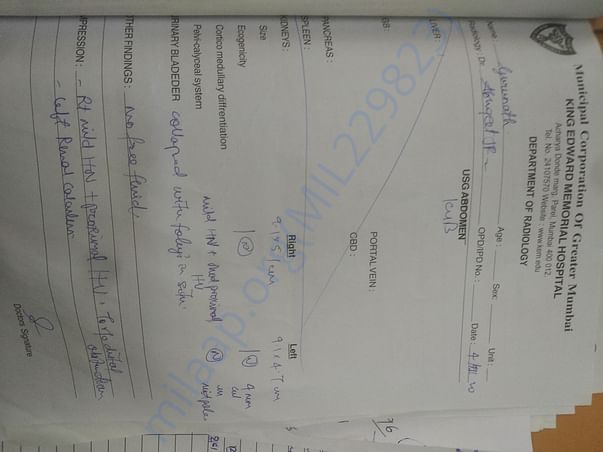 Municipal Corporation Of Greater Mumbai
KING EDWARD MEMORIAL HOSPITAL
Acharya Donde marg, Parel, Mumbai 400 012.
Tel. No. 24107570 Website : www.kem.edu
DEPARTMENT OF RADIOLOGY
Name : Gurunath Age : Sex: Unit :
Radiology : Dr. OPD/IPD No. : Date : 4/
USG ABDOMEN
KUB
LIVER :
PORTAL VEIN :
GB
CBD :
PANCREAS :
SPLEEN :
KIDNEYS : Right Left
Size 9.1x5.1cm 9.1x4.7cm
Ecogenicity (N) (N) 4mm cal
Cortico medullary diffrentiation in midpole
Pelvi-calyceal system mild HN + mild proximal HU (N)
URINARY BLADEDER collapsed with foley's in situ.
OTHER FINDINGS : no free fluid.
IMPRESSION : - Rt mild HN + proximal HU
- left Renal calculus
Doctors Signature
milaap.org/MIL2298232